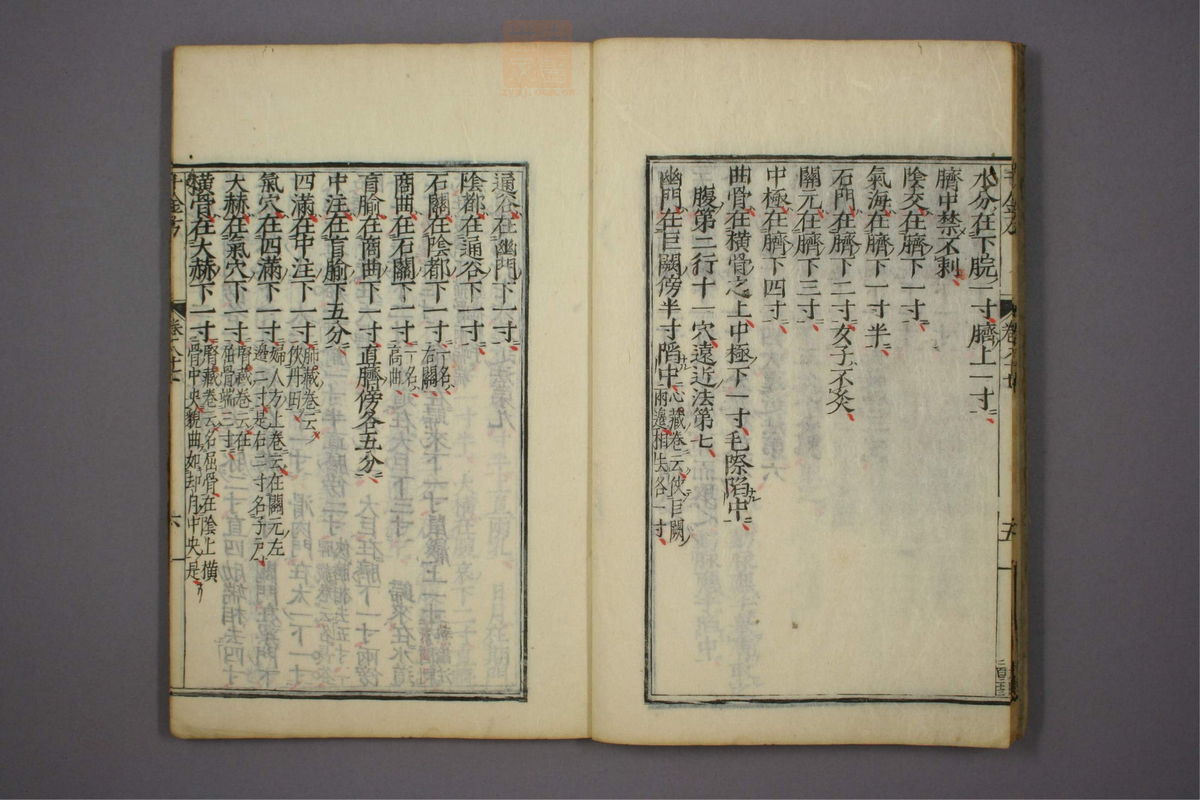 水分在下脘一寸臍上一寸
臍中禁不刺
陰交在臍下一寸
氣海在臍下一寸半
石門在臍下二寸女子不灸
關元在臍下三寸
中極在臍下四寸
曲骨在橫骨之上中極下一寸毛際陷中
腹第二行十一穴遠近法第七
幽門在巨闕傍半寸陷中心藏卷云俠巨闕
兩邊相去各一寸
通谷在幽門下一寸
陰都在通谷下一寸
石關在陰都下一寸一名
右關
商曲在石關下一寸一名
高曲
肓腧在商曲下一寸直臍傍各五分
中注在肓腧下五分
四滿在中注下一寸肺藏卷云
俠丹田
氣穴在四滿下一寸婦人方上卷云在關元左
邊二寸是右二寸名子戶
大赫在氣穴下一寸腎藏卷云在
屈骨端三寸
橫骨在大赫下一寸腎藏卷云名屈骨在陰上橫
骨中央貌曲如却月中央是
千金方
六